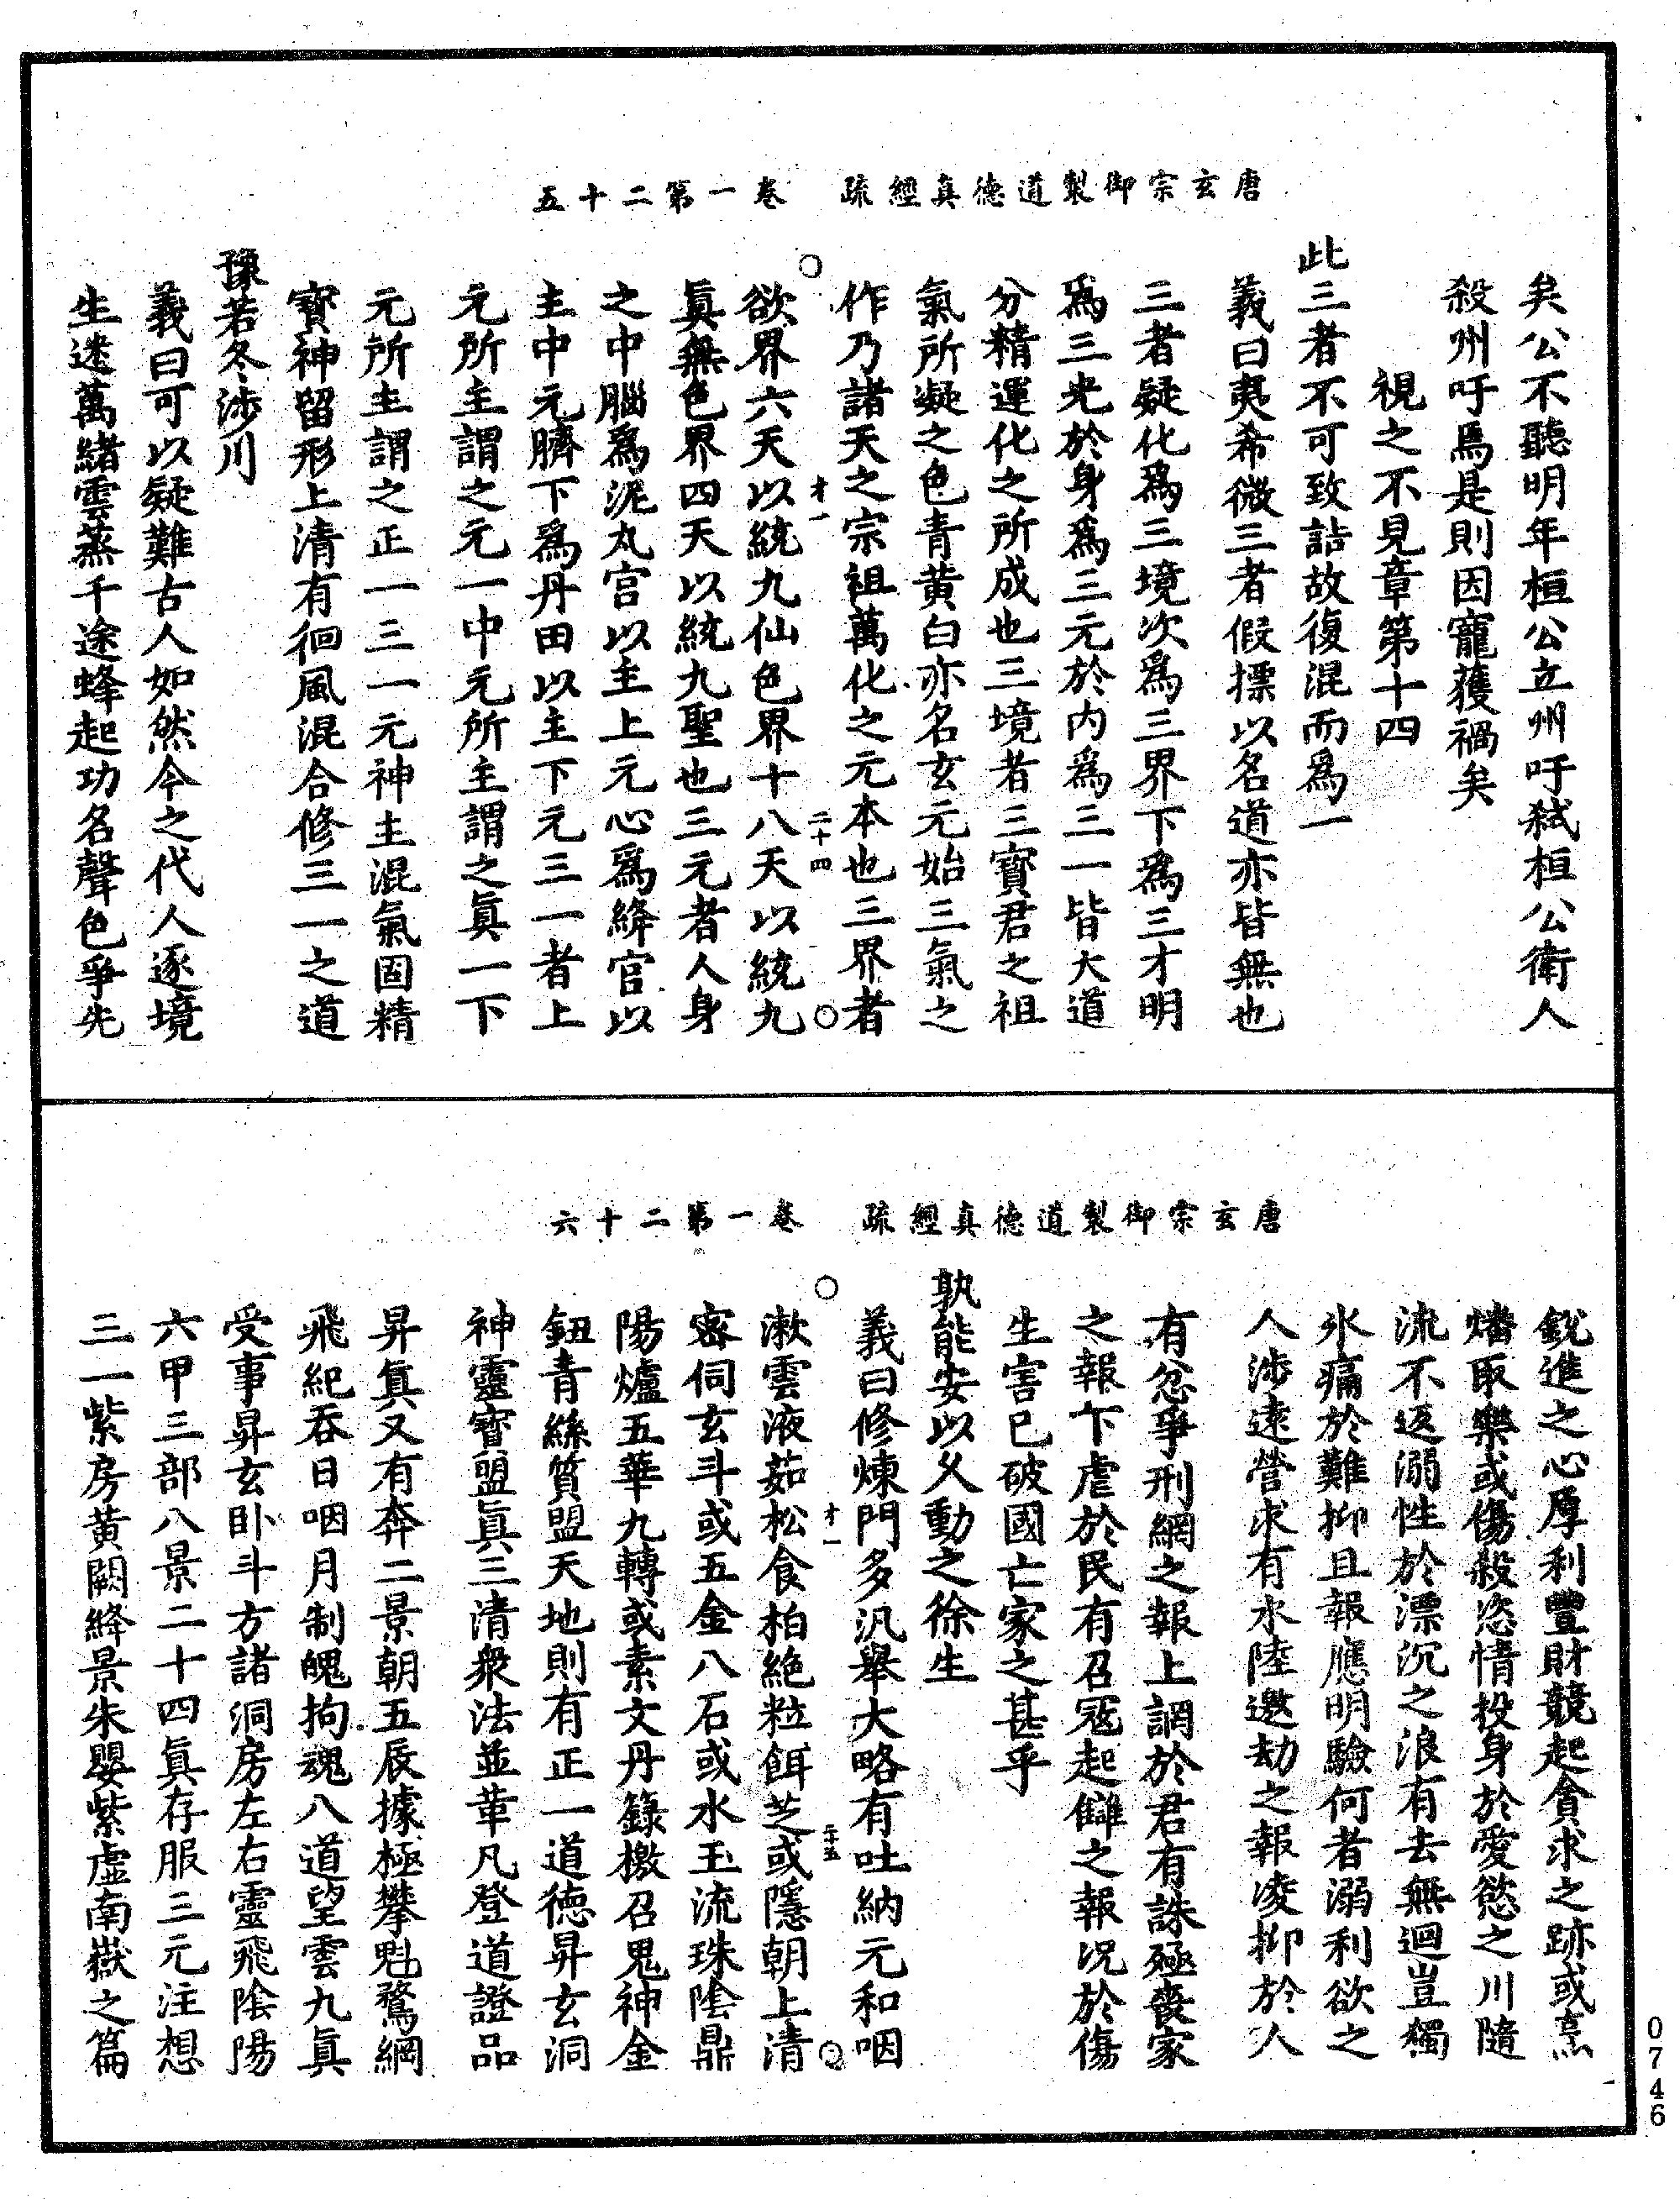 唐玄宗御製道德真經疏　卷一第二十五
矣公不聽明年桓公立州吁弑桓公衛人
殺州吁焉是則因寵獲禍矣
視之不見章第十四
此三者不可致詰故復混而爲一
義曰夷希微三者假摽以名道亦皆無也
三者凝化爲三境次爲三界下爲三才明
爲三光於身爲三元於内爲三一皆大道
分精運化之所成也三境者三寶君之祖
氣所凝之色青黃白亦名玄元始三氣之
作乃諸天之宗祖萬化之元本也三界者
才一　二十四
欲界六天以統九仙色界十八天以統九
真無色界四天以統九聖也三元者人身
之中腦爲泥丸宮以主上元心爲絳宮以
主中元臍下爲丹田以主下元三一者上
元所主謂之元一中元所主謂之真一下
元所主謂之正一三一元神主混氣固精
寶神留形上清有徊風混合修三一之道
豫若冬涉川
義曰可以疑難古人如然今之代人逐境
生迷萬緒雲蒸千途蜂起功名聲色爭先
唐玄宗御製道德真經疏　卷一第二十六
銳進之心厚利豐財競起貪求之跡或烹
燔取樂或傷殺恣情投身於愛慾之川隨
流不返溺性於漂沉之浪有去無迴豈獨
氷痛於難抑且報應明驗何者溺利欲之
人涉遠營求有水陸邀劫之報凌抑於人
有忿爭刑網之報上謂於君有誅殛喪家
之報下虐於民有召寇起讎之報况於傷
生害己破國亡家之甚乎
孰能安以久動之徐生
義曰修煉門多汎舉大略有吐納元和咽
才一　二十五
漱雲液茹松食柏絕粒餌芝或隱朝上清
密伺玄斗或五金八石或水玉流珠陰鼎
陽爐五華九轉或素文丹籙檄召鬼神金
鈕青絲質盟天地則有正一道德昇玄洞
神靈寶盟真三清衆法並革凡登道證品
昇真又有奔二景朝五辰據極攀魁騖綱
飛紀吞日咽月制魄拘魂八道望雲九真
受事昇玄卧斗方諸洞房左右靈飛陰陽
六甲三部八景二十四真存服三元注想
三一紫房黃闕絳景朱嬰紫虛南嶽之篇
0746